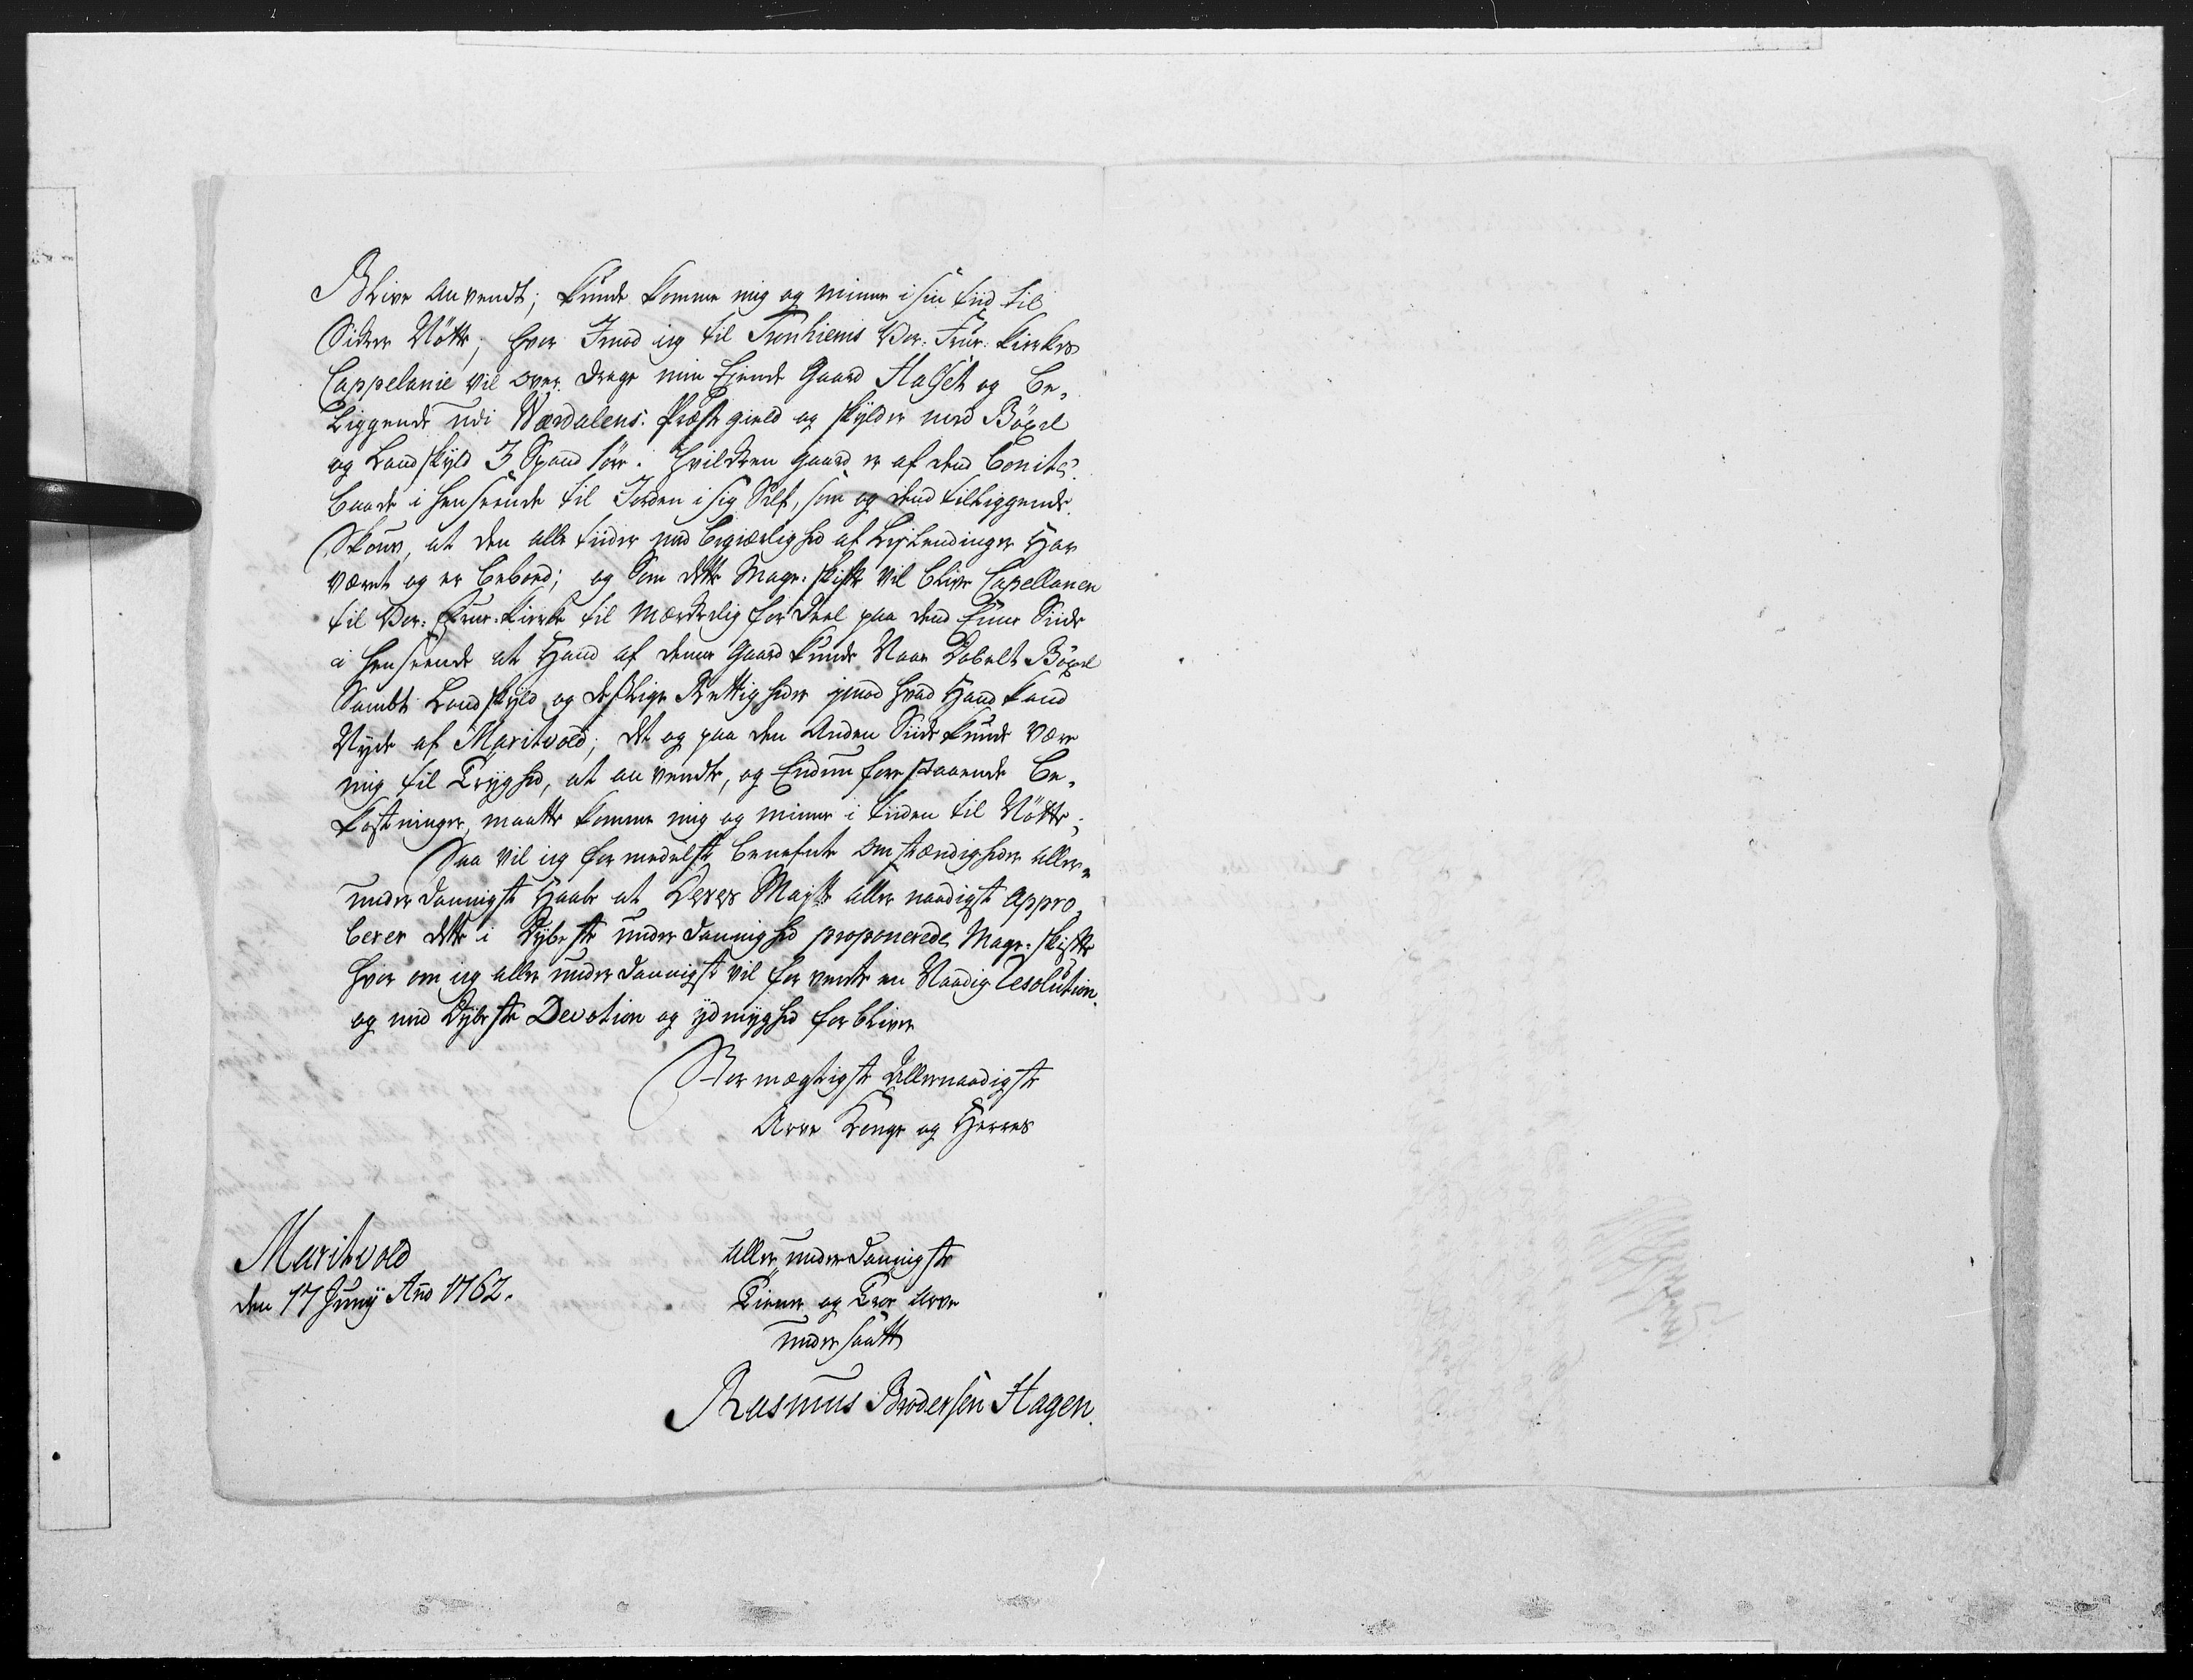 Blive anvendt; kunde komme mig og minne i sin tiid til
Sidere Nötte; hvor Imod ieg til Tronhiems Vor: Frue: Kirckes
Cappelanie vil over drage min Eiende Gaard Halset og be-
Liggende udi Værdalens: Præste gield og skylder med Böxel
og Landskyld 3 Spand söre: hvilken gaard er af dend bonitè
baade i henseende til Jorden i sig Self, som og dend tilliggende
Skouv, at den alle tiider med begiærlighed af Leylendinger Har
været og er beboed; og Som dette Mage: skifte vil blive Capellanen
til Vor: Frue: Kircke til mærckelig fordeel paa dend Eene Siide
i henseende at Hand af denne Gaard kunde Naae Dobelt Böxel
Sambt Landskyld og deslige Rettigheder imod hvad Hand kand
Nyde af Maritvold; det og paa den Anden Siide kunde være
mig til Tryghed, at anvendte, og Endnu forestaaende be-
kostninger, maatte komme mig og minne i tiiden til Nötte;
Saa vil ieg formedelst benefnte omstændigheder aller-
underdannigst Haabe at Deres Mayts aller naadigst appro-
berer dette i Dybeste underdannighed proponerede Mage: skifte
hvor om ieg aller underdannigst vil forvente en Naadig Resolution
og med Dybeste Devotion og ydmyghed forbliver
Stormægtigste Allernaadigste
Arve Konge og Herres
Maritvold
den 17 Junij Año 1762.
aller underdannigste
Tiener og Troe Arve
undersaatt
Rasmus Brodersen Hagen.